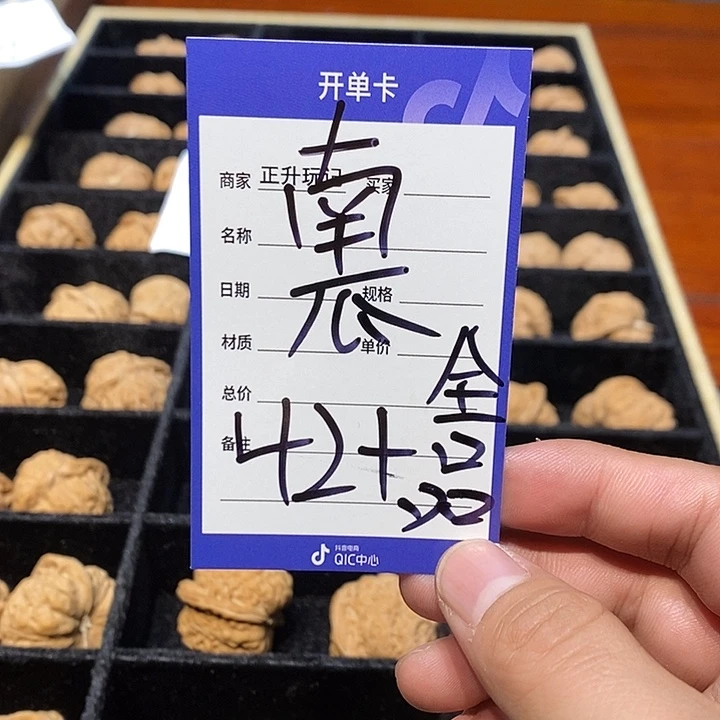 开单卡
商家 正升玩记 买家
名称
日期 规格
材质 单价
总价
备注
抖音电商
QIC中心
南瓜
42+
全品